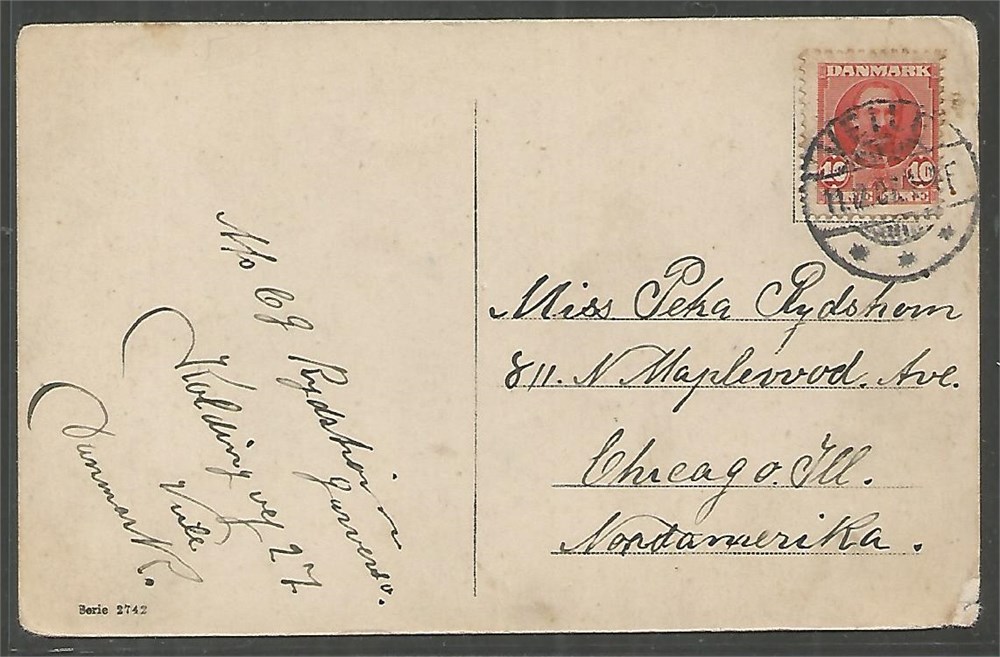 DANMARK
10 10
VEJLE
Miss Peka Rydshom
811. N Maplewood. Ave.
Chicago. Ill.
Nordamerika.
Rydshom
Koldingvej 27
Danmark.
Serie 2742